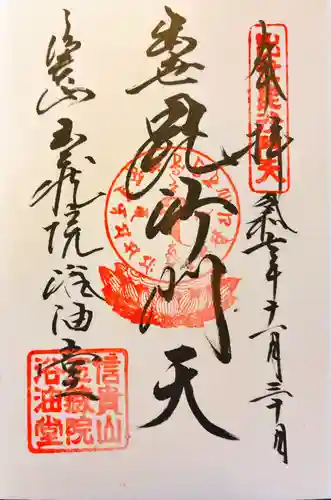 出世毘沙門天
奉拝 令和七年十一月三十日
出世毘沙門天
信貴山 玉蔵院浴油堂
信貴山
玉蔵院
浴油堂